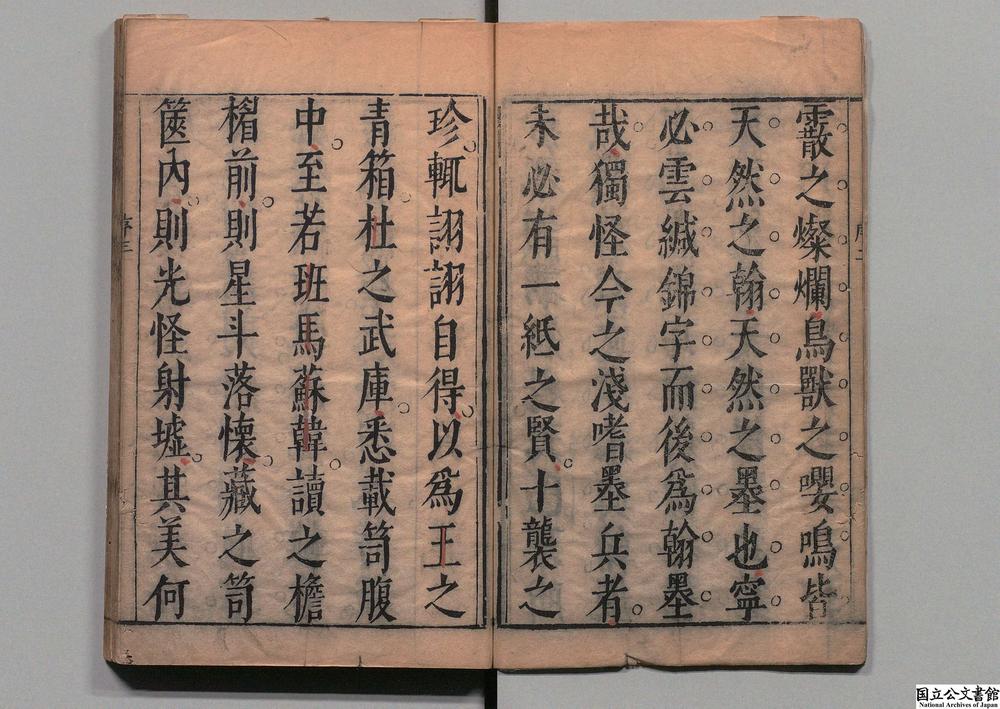 霰之燦爛鳥獸之嚶鳴皆
天然之翰天然之墨也寧
必雲緘錦字而後爲翰墨
哉獨怪今之淺嗜墨兵者
未必有一紙之賢十襲之
序二
珍輒詡詡自得以爲王之
青箱杜之武庫悉載笥腹
中至若班馬蘇韓讀之檐
楮前則星斗落懷藏之笥
篋內則光怪射墟其美何
序三
国立公文書館
National Archives of Japan